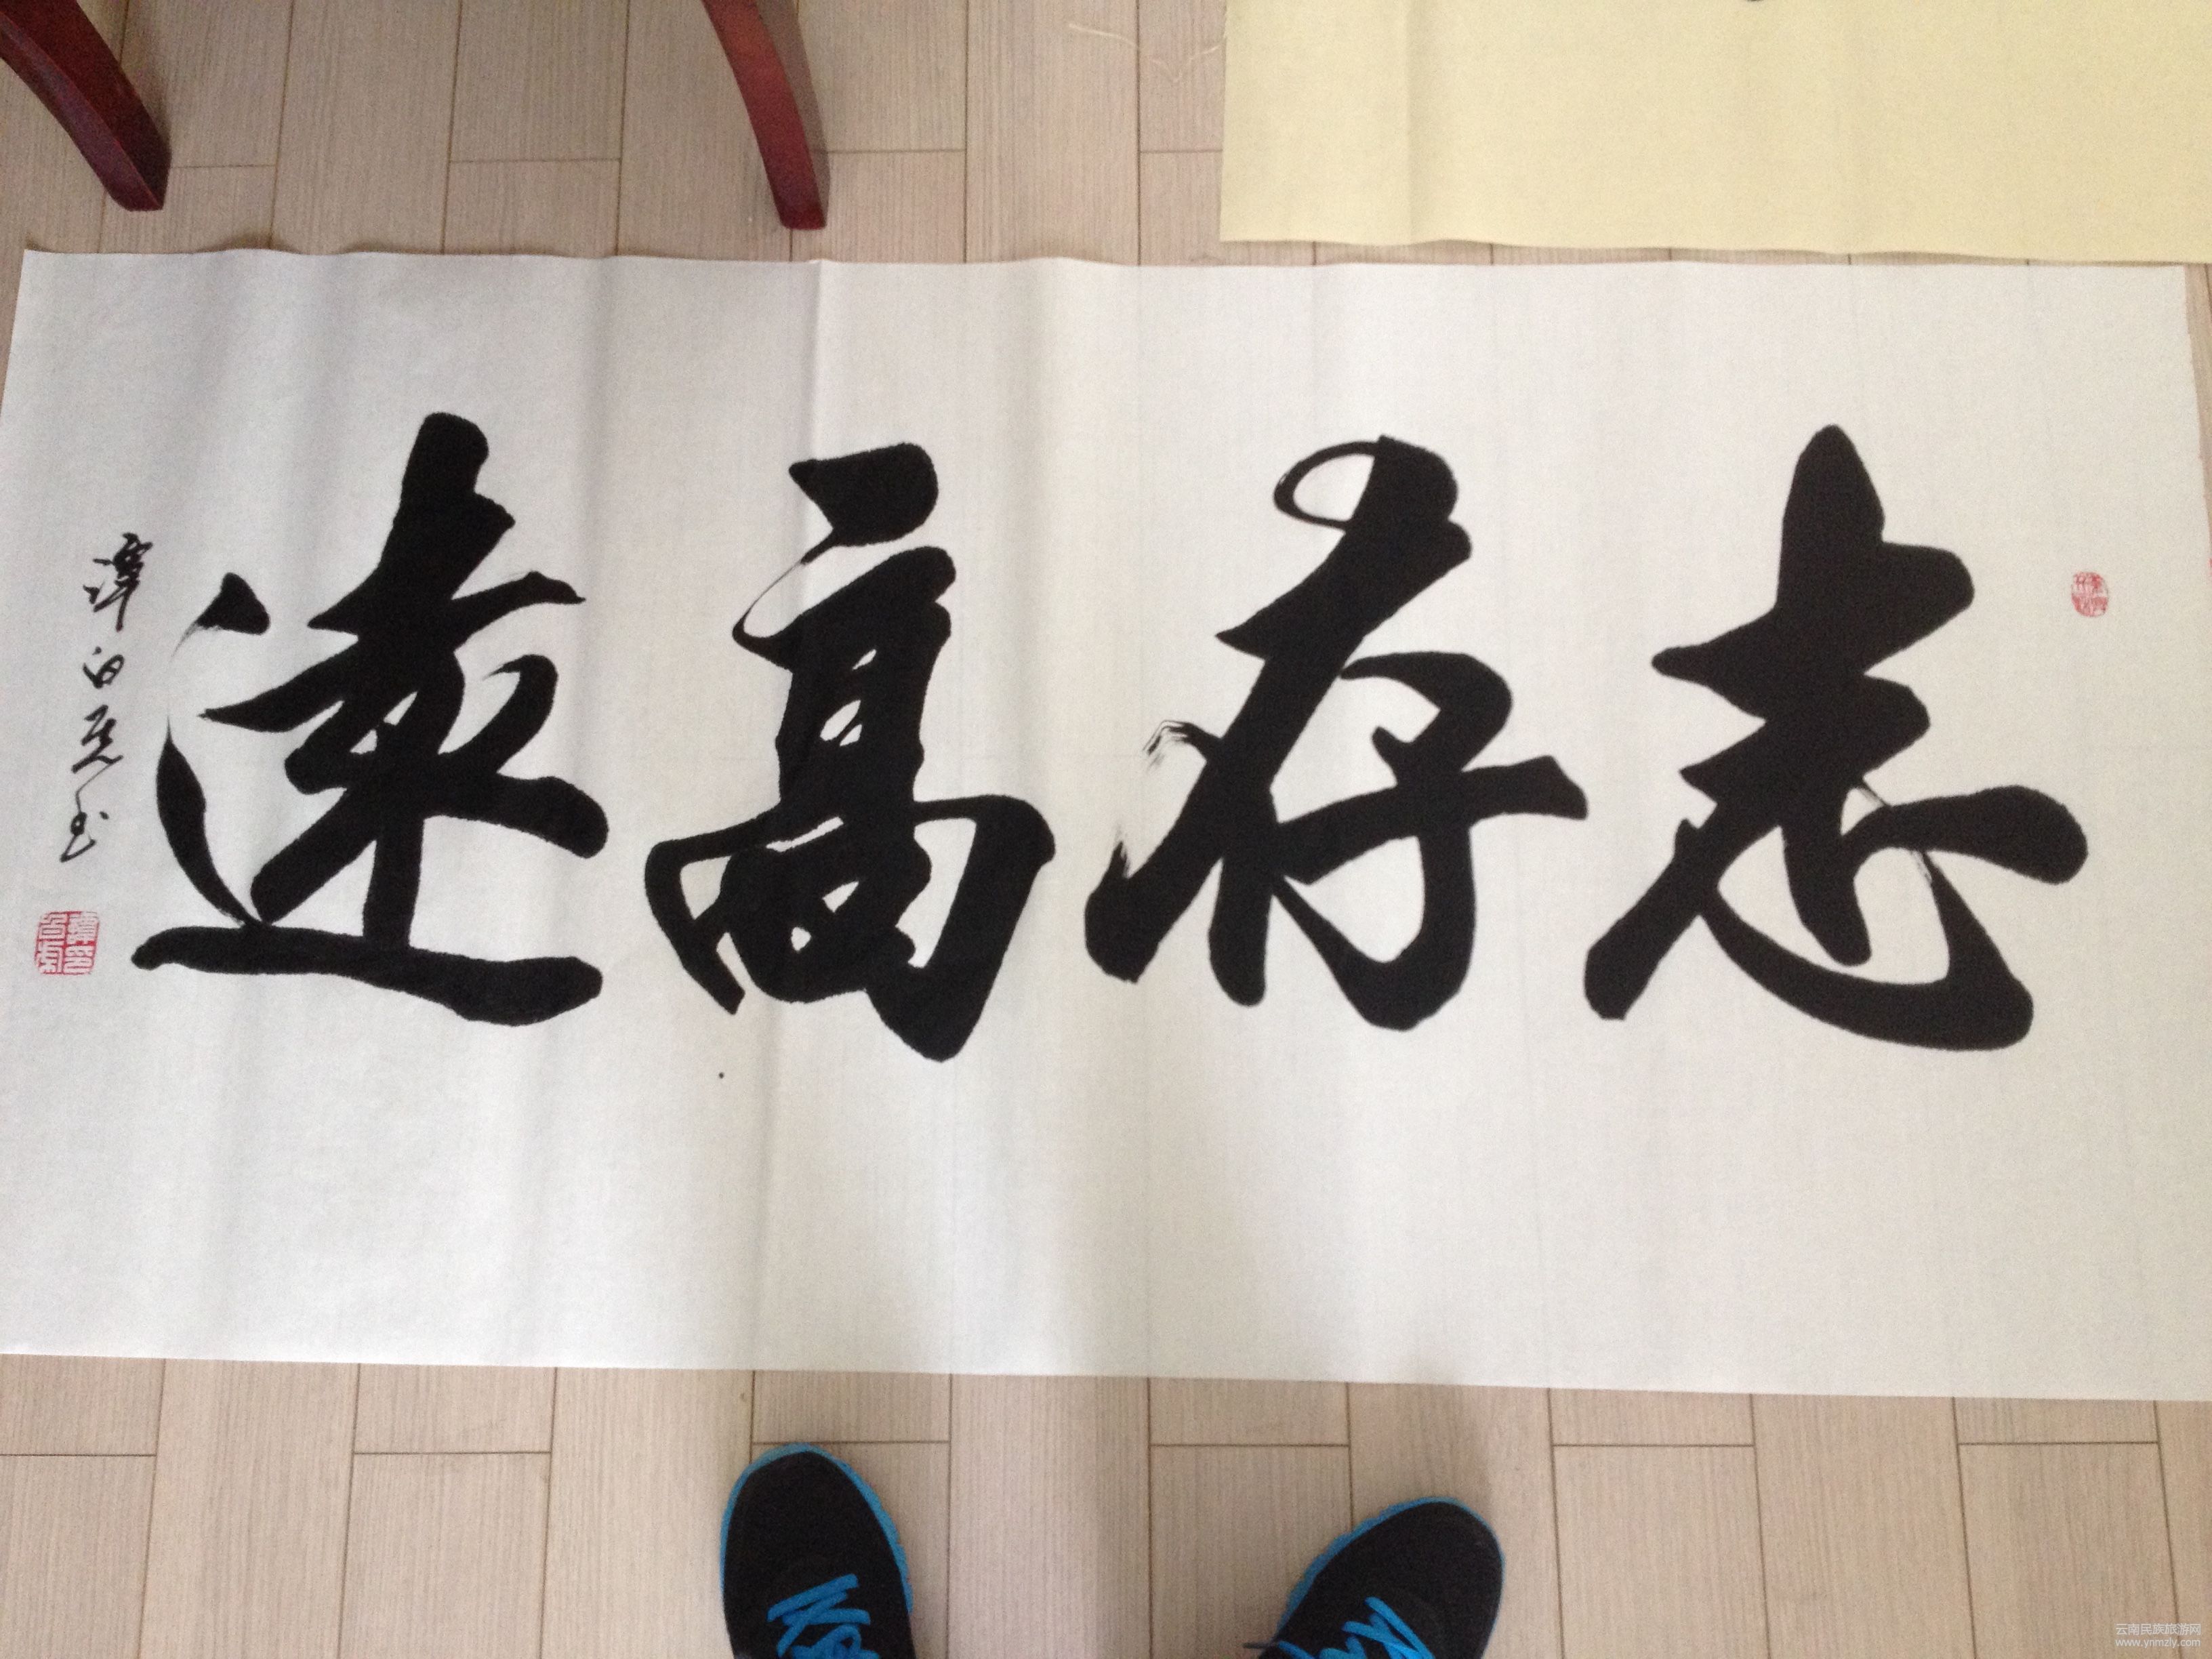 志存高遠
云南民族旅游网
www.ynmzly.com